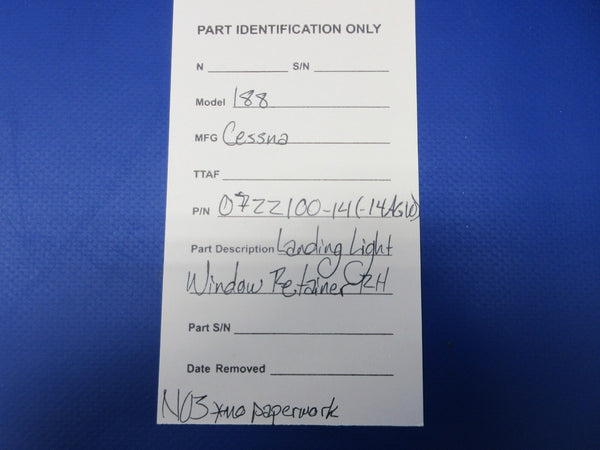 PART IDENTIFICATION ONLY
N S/N
Model 188
MFG Cessna
TTAF
P/N 0722100-14(-14AGW)
Part Description Landing Light
Window Retainer RH
Part S/N
Date Removed
NO3 *no paperwork